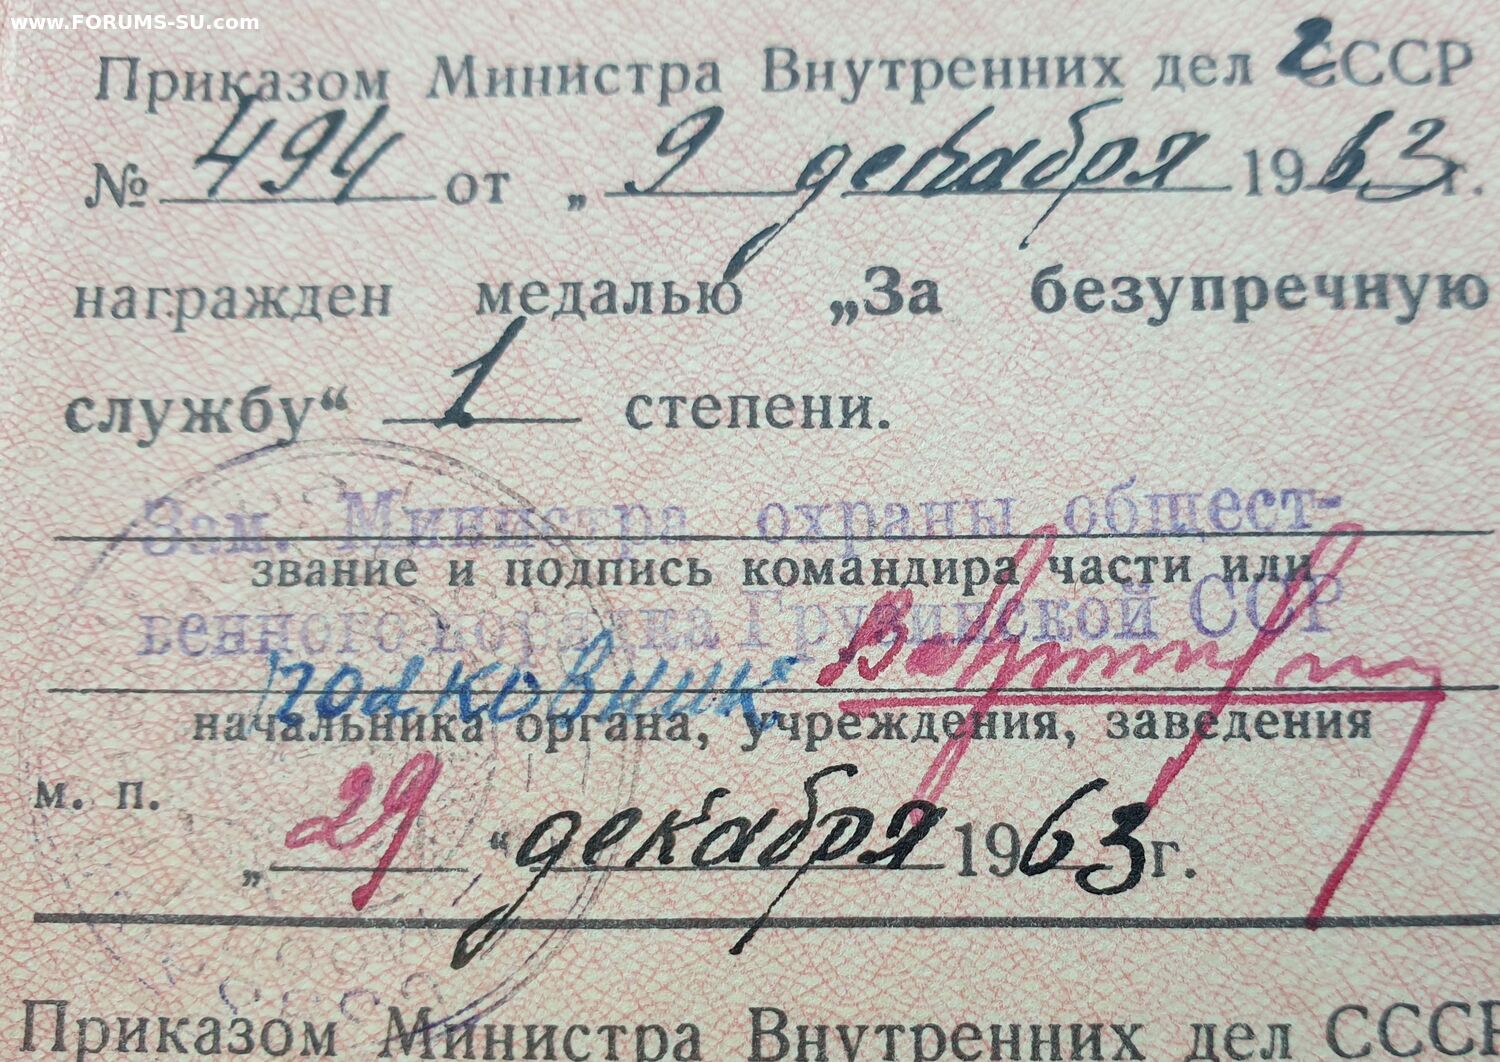 www.FORUMS-SU.com
Приказом Министра Внутренних дел гСССР
№ 494 от „ 9 декабря 1963 г.
награжден медалью „За безупречную
службу“ 1 степени.
Зам. Министра охраны общест-
звание и подпись командира части или
венного порядка Грузинской ССР
полковник
начальника органа, учреждения, заведения
м. п.
„ 29 “ декабря 1963 г.
Приказом Министра Внутренних дел СССР